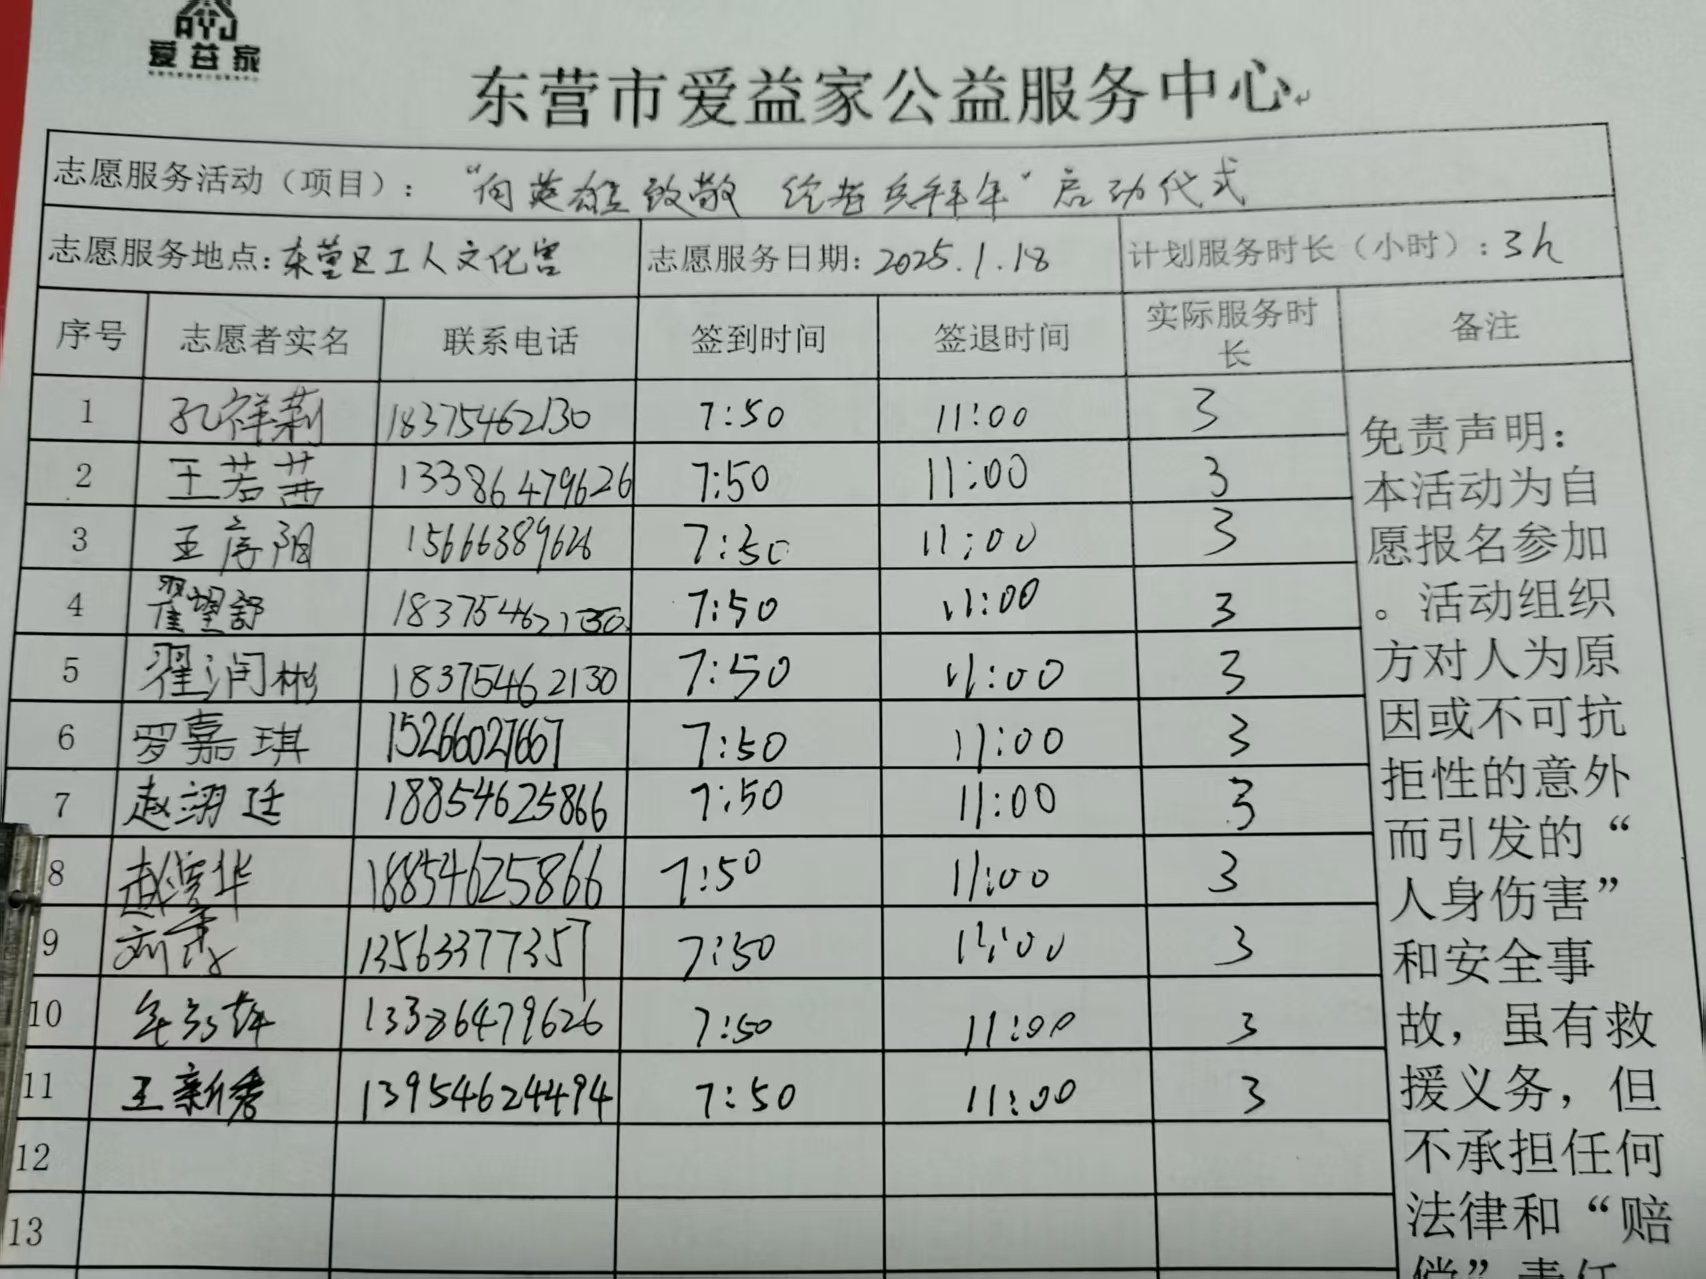 AYJ
爱益家
东营市爱益家公益服务中心
志愿服务活动（项目）：“向英雄致敬 给老兵拜年”启动仪式
志愿服务地点：东营区工人文化宫 志愿服务日期：2025.1.18 计划服务时长（小时）：3h
序号 志愿者实名 联系电话 签到时间 签退时间 实际服务时长 备注
1 孔祥莉 18375462130 7:50 11:00 3
2 王若茜 13386479626 7:50 11:00 3
3 王彦阳 15666389626 7:50 11:00 3
4 翟望舒 18375462130 7:50 11:00 3
5 翟润彬 18375462130 7:50 11:00 3
6 罗嘉琪 15266027667 7:50 11:00 3
7 赵翊廷 18854625866 7:50 11:00 3
8 赵 华 18854625866 7:50 11:00 3
9 刘 13563377357 7:50 11:00 3
10 13386479626 7:50 11:00 3
11 王新秀 13954624494 7:50 11:00 3
12
13
免责声明：
本活动为自
愿报名参加
。活动组织
方对人为原
因或不可抗
拒性的意外
而引发的“
人身伤害”
和安全事
故，虽有救
援义务，但
不承担任何
法律和“赔
偿”责任